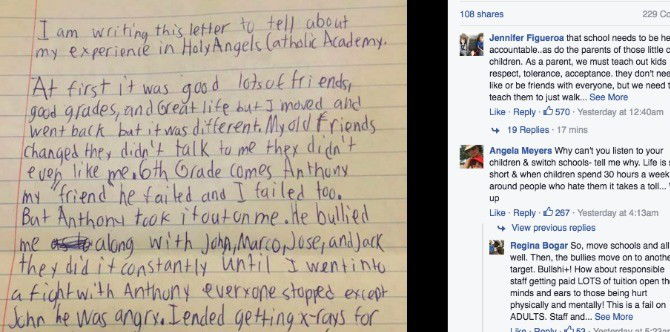 I am writing this letter to tell about
my experience in Holy Angels Catholic Academy.
At first it was good lots of friends,
good grades, and Great life but I moved and
went back but it was different. My old friends
changed they didn't talk to me they didn't
even like me. 6th Grade comes Anthony
my "friend" he failed and I failed too.
But Anthony took it out on me. He bullied
me along with John, Marco, Jose, and Jack
they did it constantly until I went into
a fight with Anthony everyone stopped except
John he was angry. I ended getting x-rays for
108 shares
229 Co
Jennifer Figueroa that school needs to be he
accountable..as do the parents of those little c
children. As a parent, we must teach out kids
respect, tolerance, acceptance. they don't nee
like or be friends with everyone, but we need t
teach them to just walk... See More
Like · Reply · 570 · Yesterday at 12:40am
19 Replies · 17 mins
Angela Meyers Why can't you listen to your
children & switch schools- tell me why. Life is s
short & when children spend 30 hours a week
around people who hate them it takes a toll...
up
Like · Reply · 267 · Yesterday at 4:13am
View previous replies
Regina Bogar So, move schools and all
well. Then, the bullies move on to anothe
target. Bullsh+! How about responsible
staff getting paid LOTS of tuition open the
minds and ears to those being hurt
physically and mentally! This is a fail on
ADULTS. Staff and... See More
Like · Reply · 53 · Yesterday at 5:23am